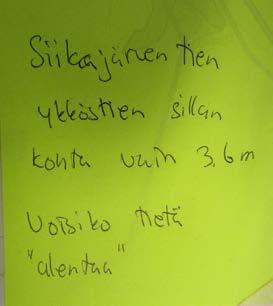 Siikajärven tien
ykköstien sillan
kohta vain 3,6 m
Voisiko tietä
"alentaa"